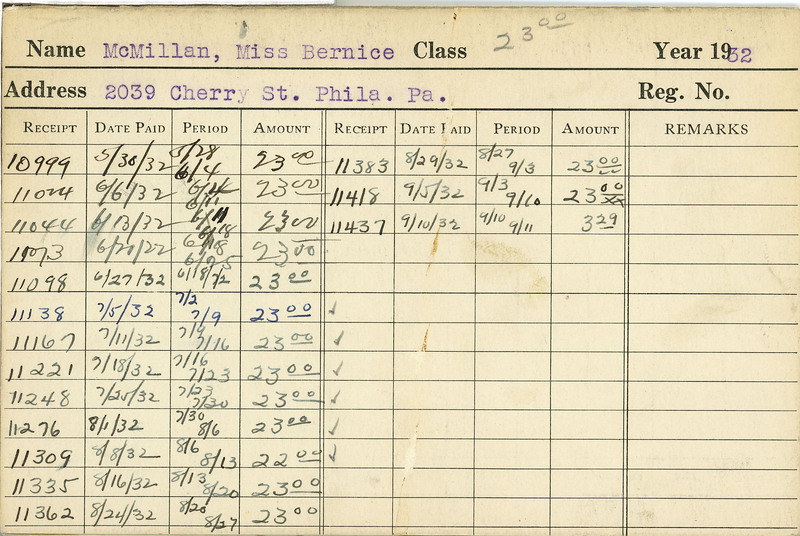 23 00
Name McMillan, Miss Bernice Class Year 1932
Address 2039 Cherry St. Phila. Pa. Reg. No.
RECEIPT DATE PAID PERIOD AMOUNT RECEIPT DATE PAID PERIOD AMOUNT REMARKS
10999 5/30/32 5/28 6/4 23 00 11383 8/29/32 8/27 9/3 23 00
11024 6/6/32 6/11 23 00 11418 9/5/32 9/3 9/10 23 00
11044 6/13/32 6/11 6/18 23 00 11437 9/10/32 9/10 9/11 3 29
6/18 6/25 23 00
11098 6/27/32 23 00
11138 7/5/32 7/2 7/9 23 00 ✓
11167 7/11/32 7/9 7/16 23 00 ✓
11221 7/18/32 7/16 7/23 23 00 ✓
11248 7/25/32 7/23 7/30 23 00 ✓
11276 8/1/32 7/30 8/6 23 00 ✓
11309 8/8/32 8/6 8/13 22 00 ✓
11335 8/16/32 8/13 8/20 23 00
11362 8/24/32 8/20 8/27 23 00